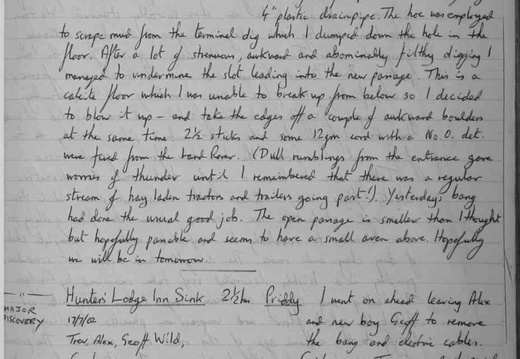 4" plastic drainpipe. The hoe was employed
to scrape mud from the terminal dig which I dumped down the hole in the
floor. After a lot of strenuous, awkward and abominably filthy digging I
managed to undermine the slot leading into the new passage. This is a
calcite floor which I was unable to break up from below so I decided
to blow it up - and take the edges off a couple of awkward boulders
at the same time. 2½ sticks and some 12gm cord with a No. 0. det.
were fired from the Land Rover. (Dull rumblings from the entrance gave
worries of thunder until I remembered that there was a regular
stream of hay laden tractors and trailers going past!). Yesterday's bang
had done the usual good job. The open passage is smaller than I thought
but hopefully passible and seems to have a small aven above. Hopefully
we will be in tomorrow.
Hunters' Lodge Inn Sink 2½hrs Priddy I went on ahead leaving Alex
MAJOR
DISCOVERY
17/7/02 and new boy Geoff to remove
Trev, Alex, Geoff Wild, the bang and electric cables.